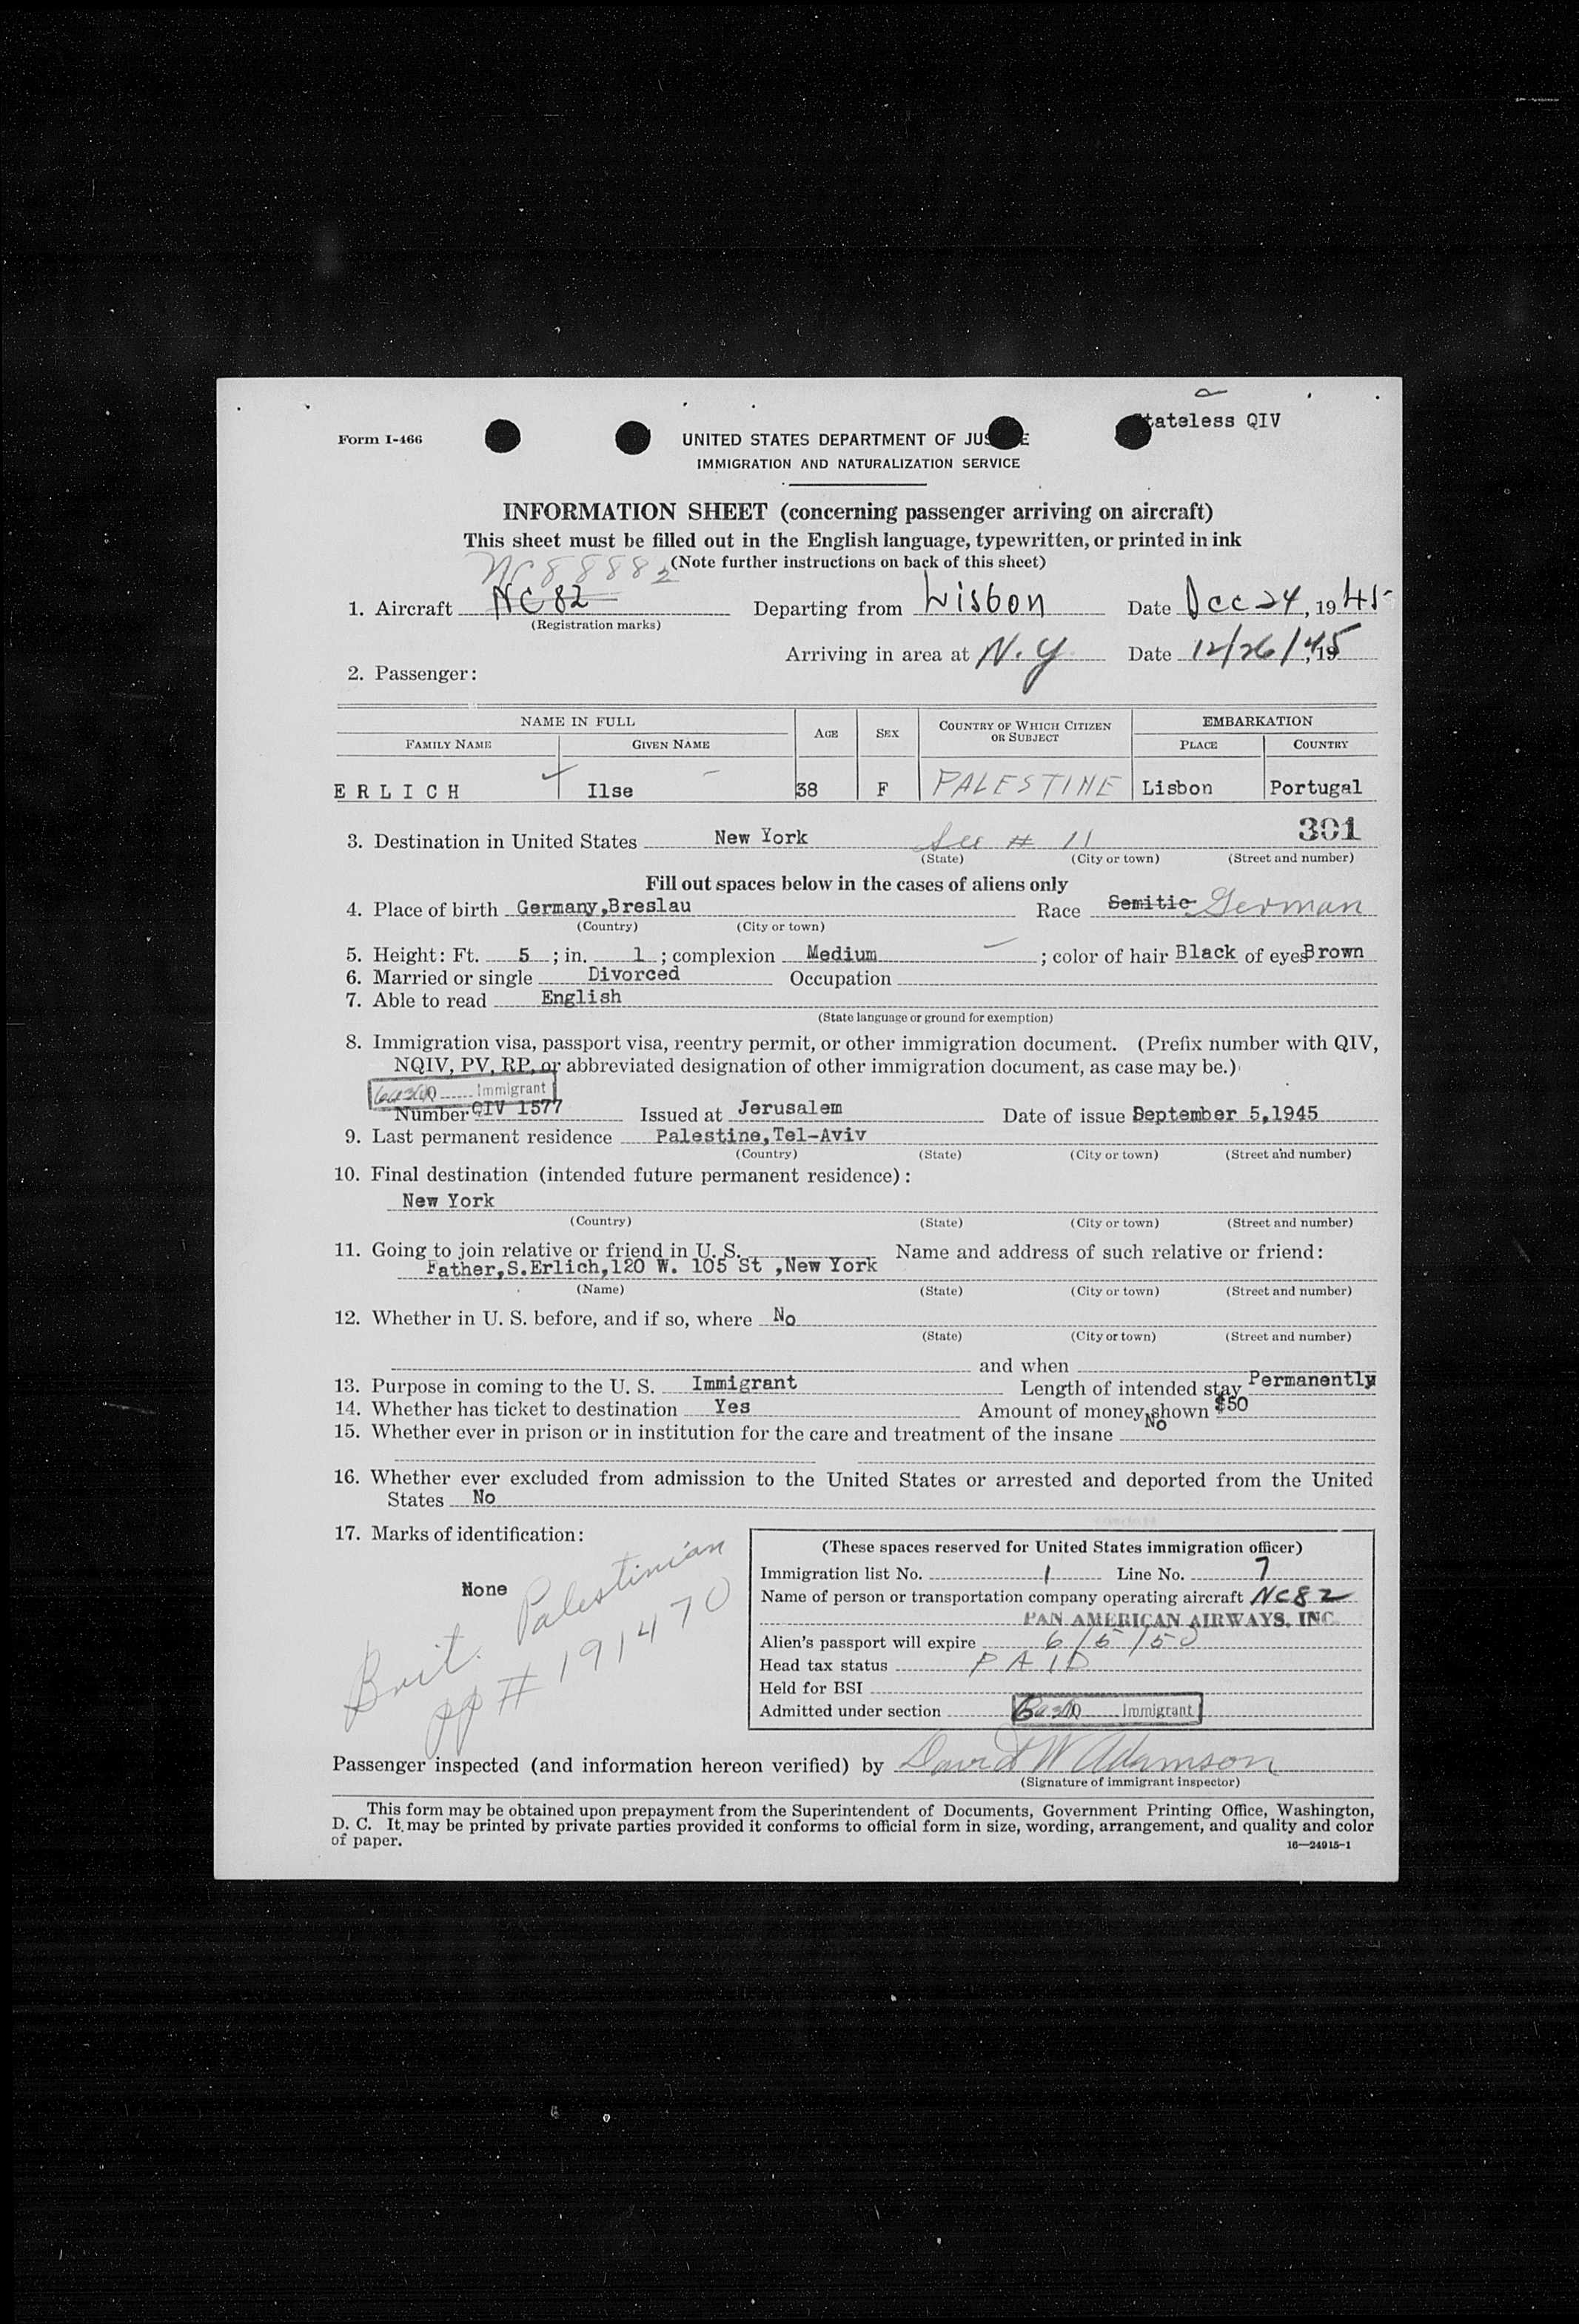 Stateless QIV
Form I-466
UNITED STATES DEPARTMENT OF JUSTICE
IMMIGRATION AND NATURALIZATION SERVICE
INFORMATION SHEET (concerning passenger arriving on aircraft)
This sheet must be filled out in the English language, typewritten, or printed in ink
(Note further instructions on back of this sheet)
NC 88882
1. Aircraft NC 82 Departing from Lisbon Date Dec 24, 1945
(Registration marks)
Arriving in area at N.Y Date 12/26/45, 19
2. Passenger:
NAME IN FULL AGE SEX COUNTRY OF WHICH CITIZEN OR SUBJECT EMBARKATION
FAMILY NAME GIVEN NAME PLACE COUNTRY
ERLICH Ilse 38 F PALESTINE Lisbon Portugal
301
3. Destination in United States New York See # 11
(State) (City or town) (Street and number)
Fill out spaces below in the cases of aliens only
4. Place of birth Germany,Breslau Race Semitic German
(Country) (City or town)
5. Height: Ft. 5 ; in. 1 ; complexion Medium ; color of hair Black of eyes Brown
6. Married or single Divorced Occupation
7. Able to read English
(State language or ground for exemption)
8. Immigration visa, passport visa, reentry permit, or other immigration document. (Prefix number with QIV,
NQIV, PV, RP, or abbreviated designation of other immigration document, as case may be.)
Immigrant
Number QIV 1577 Issued at Jerusalem Date of issue September 5,1945
9. Last permanent residence Palestine,Tel-Aviv
(Country) (State) (City or town) (Street and number)
10. Final destination (intended future permanent residence):
New York
(Country) (State) (City or town) (Street and number)
11. Going to join relative or friend in U. S. Name and address of such relative or friend:
Father,S.Erlich,120 W. 105 St ,New York
(Name) (State) (City or town) (Street and number)
12. Whether in U. S. before, and if so, where No
(State) (City or town) (Street and number)
and when
13. Purpose in coming to the U. S. Immigrant Length of intended stay Permanently
14. Whether has ticket to destination Yes Amount of money shown $50
15. Whether ever in prison or in institution for the care and treatment of the insane No
16. Whether ever excluded from admission to the United States or arrested and deported from the United
States No
17. Marks of identification:
None
Brit. Palestinian
pp # 191470
(These spaces reserved for United States immigration officer)
Immigration list No. 1 Line No. 7
Name of person or transportation company operating aircraft NC82
PAN AMERICAN AIRWAYS, INC.
Alien's passport will expire 6/5/50
Head tax status PAID
Held for BSI
Admitted under section Immigrant
Passenger inspected (and information hereon verified) by David W Adamson
(Signature of immigrant inspector)
This form may be obtained upon prepayment from the Superintendent of Documents, Government Printing Office, Washington,
D. C. It may be printed by private parties provided it conforms to official form in size, wording, arrangement, and quality and color
of paper.
16—24915-1